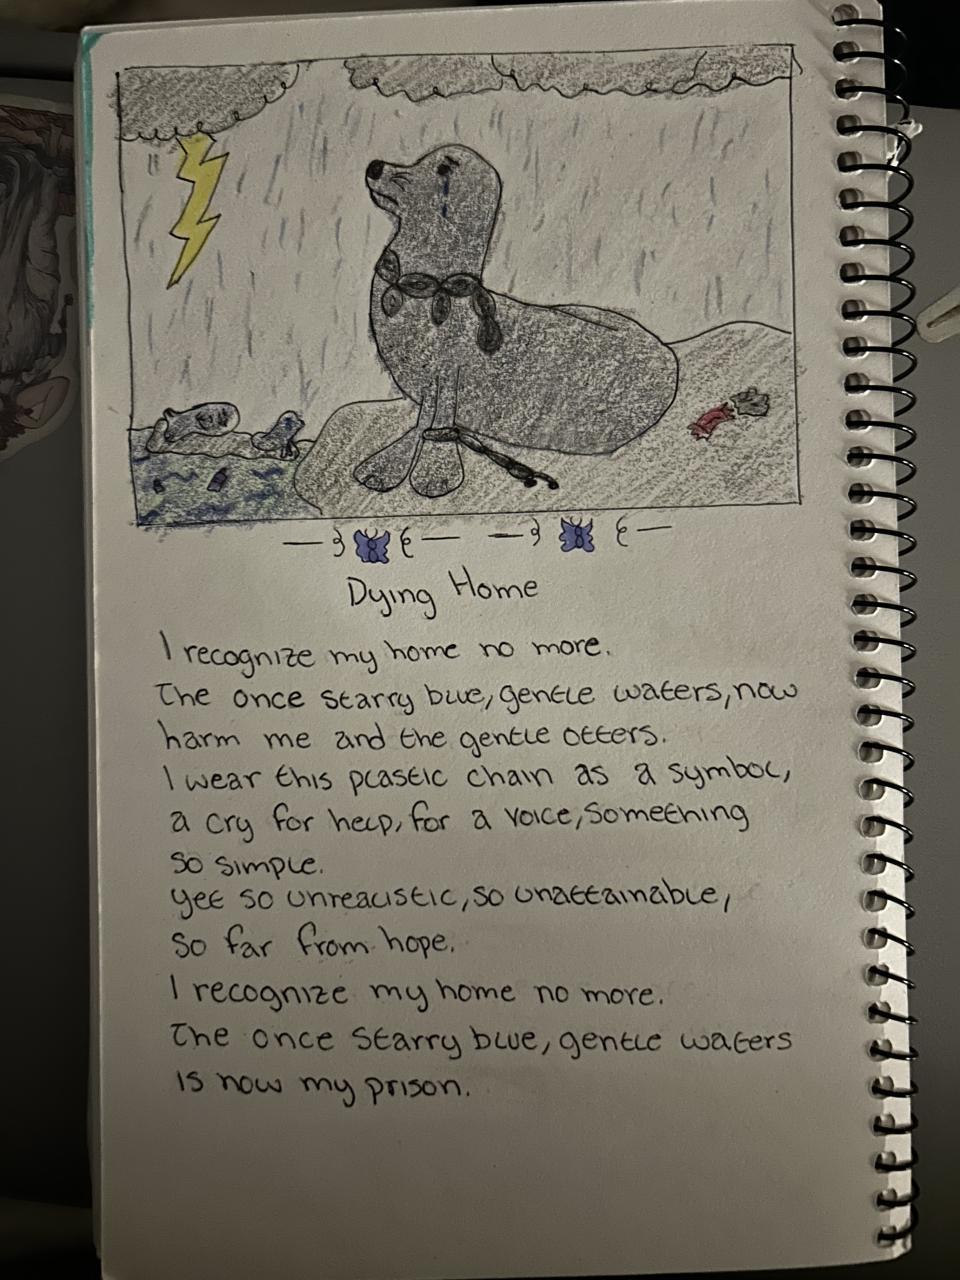 Dying Home
I recognize my home no more.
The once starry blue, gentle waters, now
harm me and the gentle otters.
I wear this plastic chain as a symbol,
a cry for help, for a voice, something
so simple.
yet so unrealistic, so unattainable,
so far from hope.
I recognize my home no more.
The once starry blue, gentle waters
is now my prison.